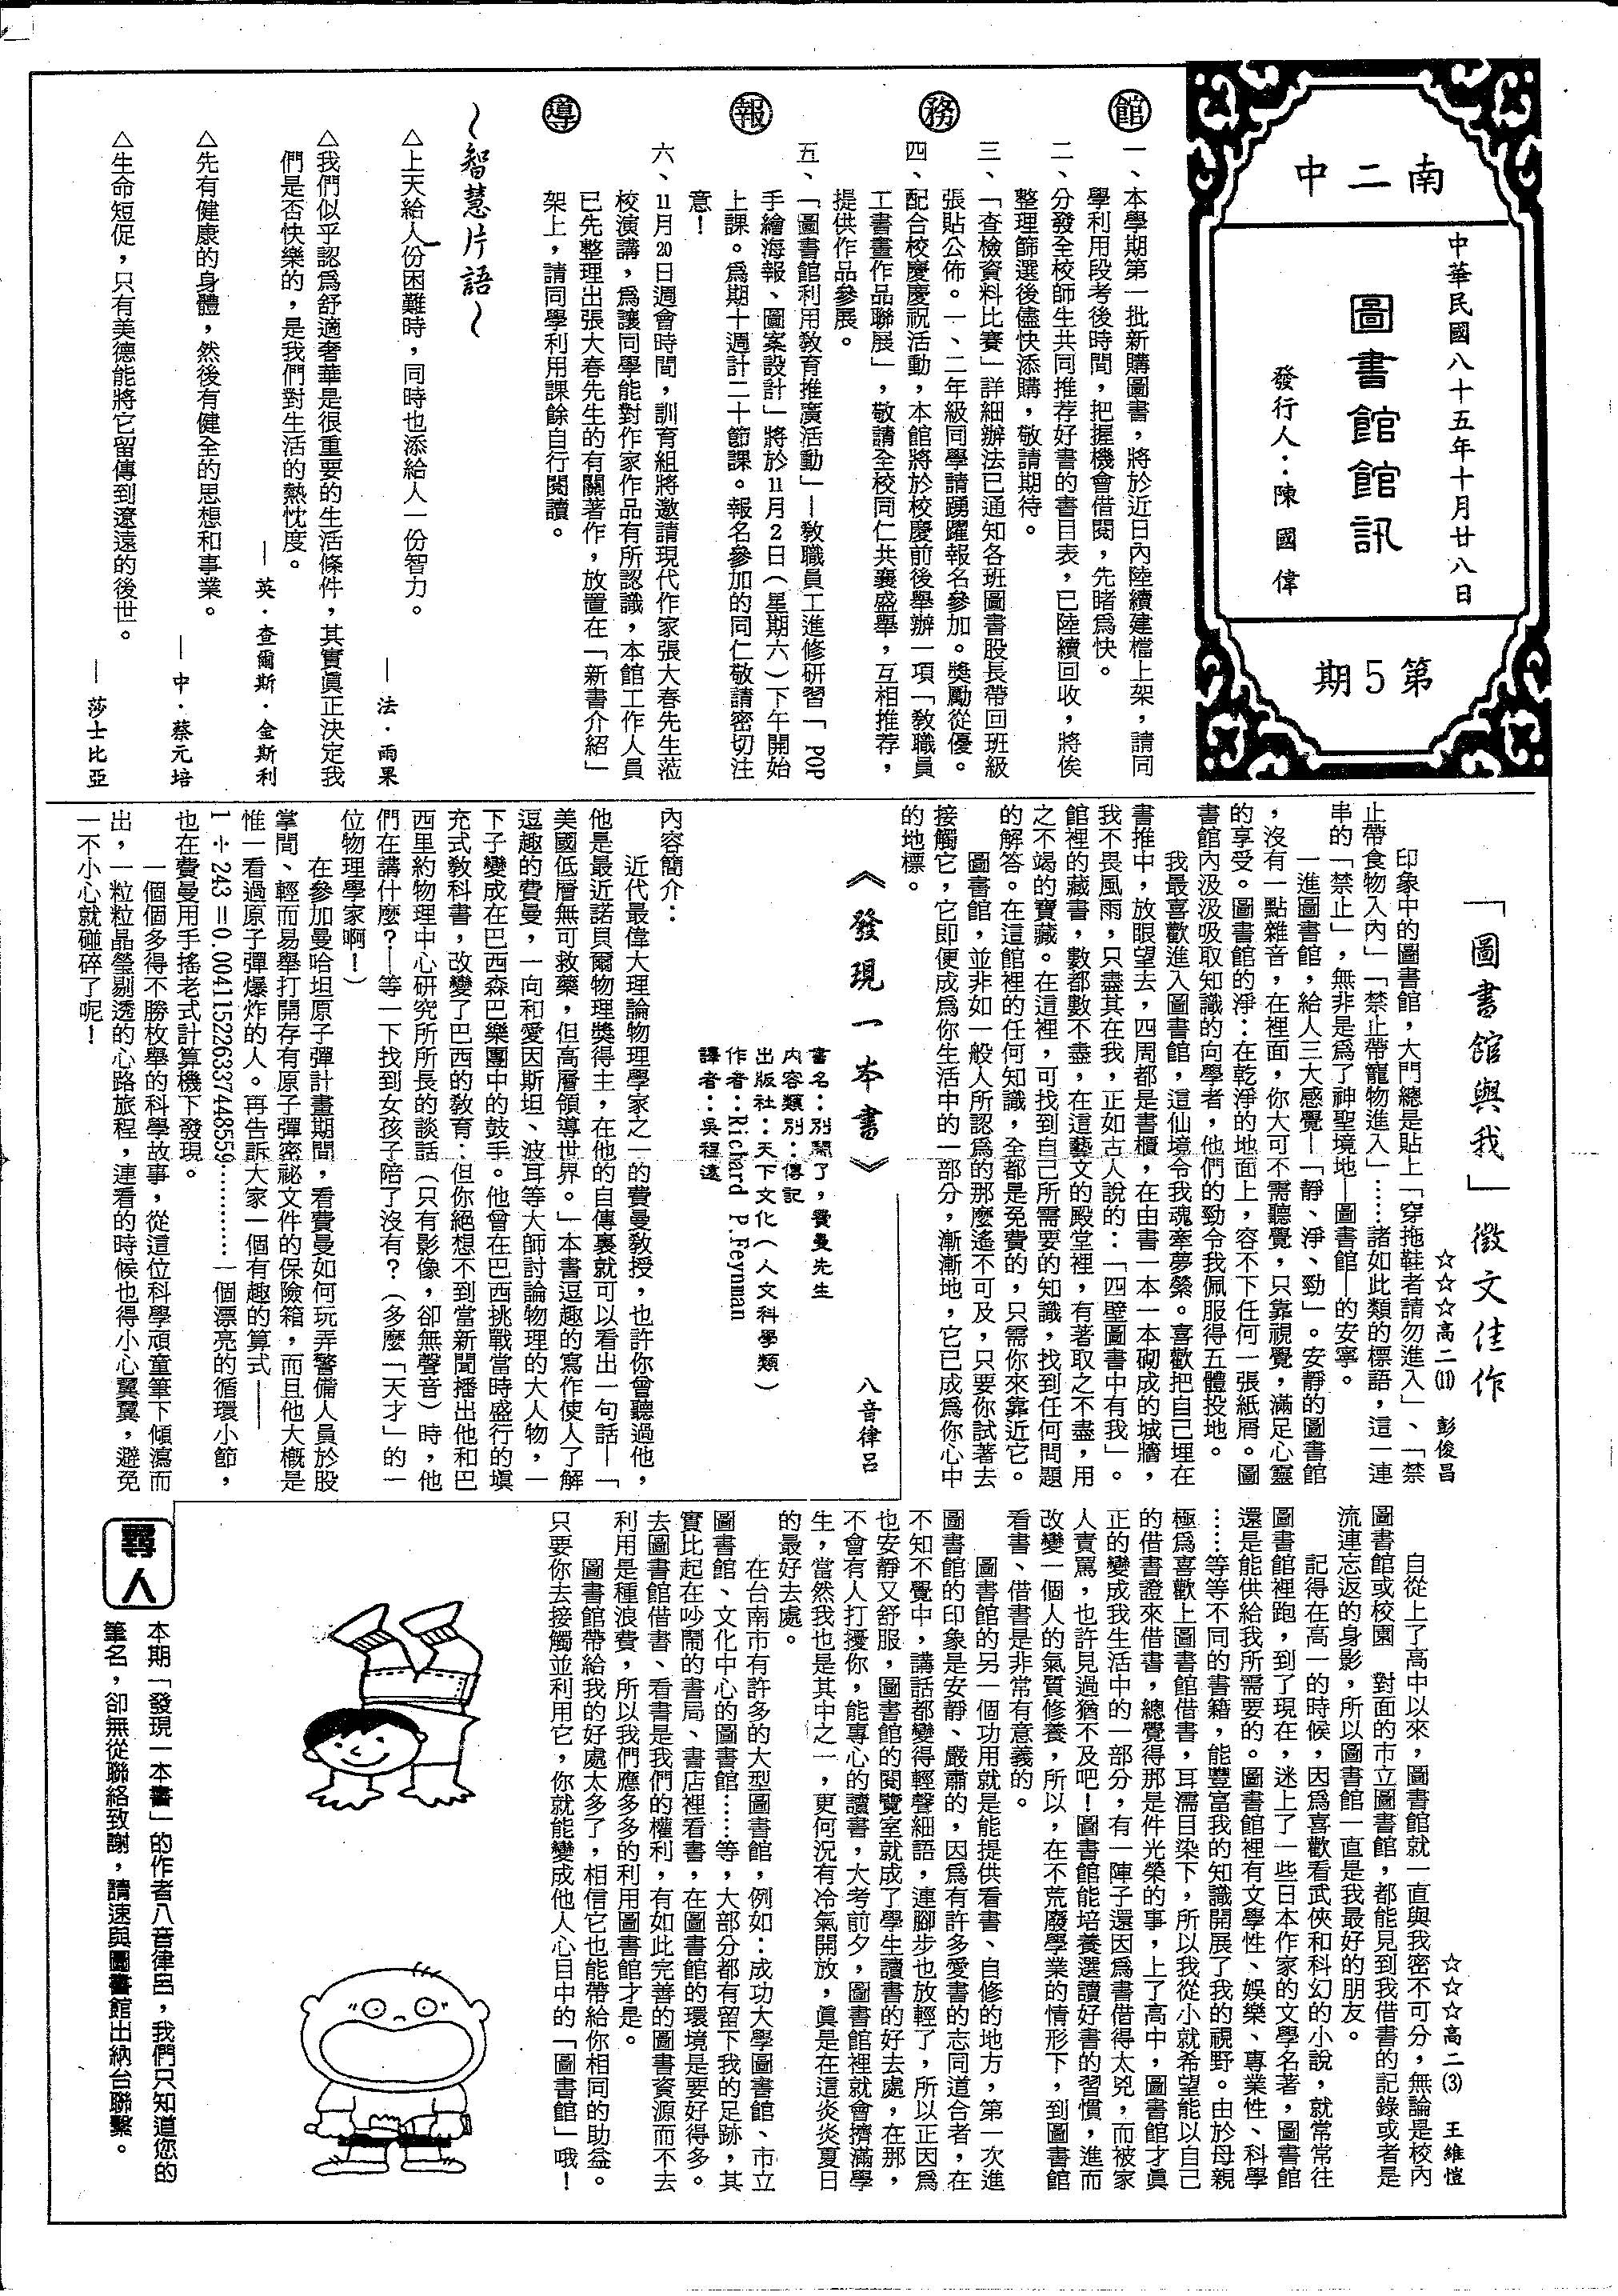 南二中
中華民國八十五年十月廿八日
圖書館館訊
發行人：陳國偉
第5期
館務報導
一、本學期第一批新購圖書，將於近日內陸續建檔上架，請同
學利用段考後時間，把握機會借閱，先睹為快。
二、分發全校師生共同推荐好書的書目表，已陸續回收，將俟
整理篩選後儘快添購，敬請期待。
三、「查檢資料比賽」詳細辦法已通知各班圖書股長帶回班級
張貼公佈。一、二年級同學請踴躍報名參加。獎勵從優。
四、配合校慶慶祝活動，本館將於校慶前後舉辦一項「教職員
工書畫作品聯展」，敬請全校同仁共襄盛舉，互相推荐，
提供作品參展。
五、「圖書館利用教育推廣活動」—教職員工進修研習「POP
手繪海報、圖案設計」將於11月2日（星期六）下午開始
上課。為期十週計二十節課。報名參加的同仁敬請密切注
意！
六、11月20日週會時間，訓育組將邀請現代作家張大春先生蒞
校演講，為讓同學能對作家作品有所認識，本館工作人員
已先整理出張大春先生的有關著作，放置在「新書介紹」
架上，請同學利用課餘自行閱讀。
～智慧片語～
△上天給人一份困難時，同時也添給人一份智力。
—法．雨果
△我們似乎認為舒適奢華是很重要的生活條件，其實真正決定我
們是否快樂的，是我們對生活的熱忱度。
—英．查爾斯．金斯利
△先有健康的身體，然後有健全的思想和事業。
—中．蔡元培
△生命短促，只有美德能將它留傳到遼遠的後世。
—莎士比亞
「圖書館與我」徵文佳作
☆☆☆高二⑴　彭俊昌
印象中的圖書館，大門總是貼上「穿拖鞋者請勿進入」、「禁
止帶食物入內」「禁止帶寵物進入」……諸如此類的標語，這一連
串的「禁止」，無非是為了神聖境地—圖書館—的安寧。
一進圖書館，給人三大感覺—「靜、淨、勁」。安靜的圖書館
，沒有一點雜音，在裡面，你大可不需聽覺，只靠視覺，滿足心靈
的享受。圖書館的淨：在乾淨的地面上，容不下任何一張紙屑。圖
書館內汲汲吸取知識的向學者，他們的勁令我佩服得五體投地。
我最喜歡進入圖書館，這仙境令我魂牽夢縈。喜歡把自己埋在
書推中，放眼望去，四周都是書櫃，在由書一本一本砌成的城牆，
我不畏風雨，只盡其在我，正如古人說的：「四壁圖書中有我」。
館裡的藏書，數都數不盡，在這藝文的殿堂裡，有著取之不盡，用
之不竭的寶藏。在這裡，可找到自己所需要的知識，找到任何問題
的解答。在這館裡的任何知識，全都是免費的，只需你來靠近它。
圖書館，並非如一般人所認為的那麼遙不可及，只要你試著去
接觸它，它即便成為你生活中的一部分，漸漸地，它已成為你心中
的地標。
《發現一本書》
八音律呂
書名：別鬧了，費曼先生
內容類別：傳記
出版社：天下文化（人文科學類）
作者：Richard P.Feynman
譯者：吳程遠
內容簡介：
近代最偉大理論物理學家之一的費曼教授，也許你曾聽過他，
他是最近諾貝爾物理獎得主，在他的自傳裏就可以看出一句話—「
美國低層無可救藥，但高層領導世界。」本書逗趣的寫作使人了解
逗趣的費曼，一向和愛因斯坦、波耳等大師討論物理的大人物，一
下子變成在巴西森巴樂團中的鼓手。他曾在巴西挑戰當時盛行的填
充式教科書，改變了巴西的教育：但你絕想不到當新聞播出他和巴
西里約物理中心研究所所長的談話（只有影像，卻無聲音）時，他
們在講什麼？—等一下找到女孩子陪了沒有？（多麼「天才」的一
位物理學家啊！）
在參加曼哈坦原子彈計畫期間，看費曼如何玩弄警備人員於股
掌間、輕而易舉打開存有原子彈密祕文件的保險箱，而且他大概是
惟一看過原子彈爆炸的人。再告訴大家一個有趣的算式——
1÷243＝0.004115226337448559…………一個漂亮的循環小節，
也在費曼用手搖老式計算機下發現。
一個個多得不勝枚舉的科學故事，從這位科學頑童筆下傾瀉而
出，一粒粒晶瑩剔透的心路旅程，連看的時候也得小心翼翼，避免
一不小心就碰碎了呢！
☆☆☆高二⑶　王維愷
自從上了高中以來，圖書館就一直與我密不可分，無論是校內
圖書館或校園　對面的市立圖書館，都能見到我借書的記錄或者是
流連忘返的身影，所以圖書館一直是我最好的朋友。
記得在高一的時候，因為喜歡看武俠和科幻的小說，就常常往
圖書館裡跑，到了現在，迷上了一些日本作家的文學名著，圖書館
還是能供給我所需要的。圖書館裡有文學性、娛樂、專業性、科學
……等等不同的書籍，能豐富我的知識開展了我的視野。由於母親
極為喜歡上圖書館借書，耳濡目染下，所以我從小就希望能以自己
的借書證來借書，總覺得那是件光榮的事，上了高中，圖書館才真
正的變成我生活中的一部分，有一陣子還因為書借得太兇，而被家
人責罵，也許見過猶不及吧！圖書館能培養選讀好書的習慣，進而
改變一個人的氣質修養，所以，在不荒廢學業的情形下，到圖書館
看書、借書是非常有意義的。
圖書館的另一個功用就是能提供看書、自修的地方，第一次進
圖書館的印象是安靜、嚴肅的，因為有許多愛書的志同道合者，在
不知不覺中，講話都變得輕聲細語，連腳步也放輕了，所以正因為
也安靜又舒服，圖書館的閱覽室就成了學生讀書的好去處，在那，
不會有人打擾你，能專心的讀書，大考前夕，圖書館裡就會擠滿學
生，當然我也是其中之一，更何況有冷氣開放，真是在這炎炎夏日
的最好去處。
在台南市有許多的大型圖書館，例如：成功大學圖書館、市立
圖書館、文化中心的圖書館……等，大部分都有留下我的足跡，其
實比起在吵鬧的書局、書店裡看書，在圖書館的環境是要好得多。
去圖書館借書、看書是我們的權利，有如此完善的圖書資源而不去
利用是種浪費，所以我們應多多的利用圖書館才是。
圖書館帶給我的好處太多了，相信它也能帶給你相同的助益。
只要你去接觸並利用它，你就能變成他人心目中的「圖書館」哦！
尋人
本期「發現一本書」的作者八音律呂，我們只知道您的
筆名，卻無從聯絡致謝，請速與圖書館出納台聯繫。